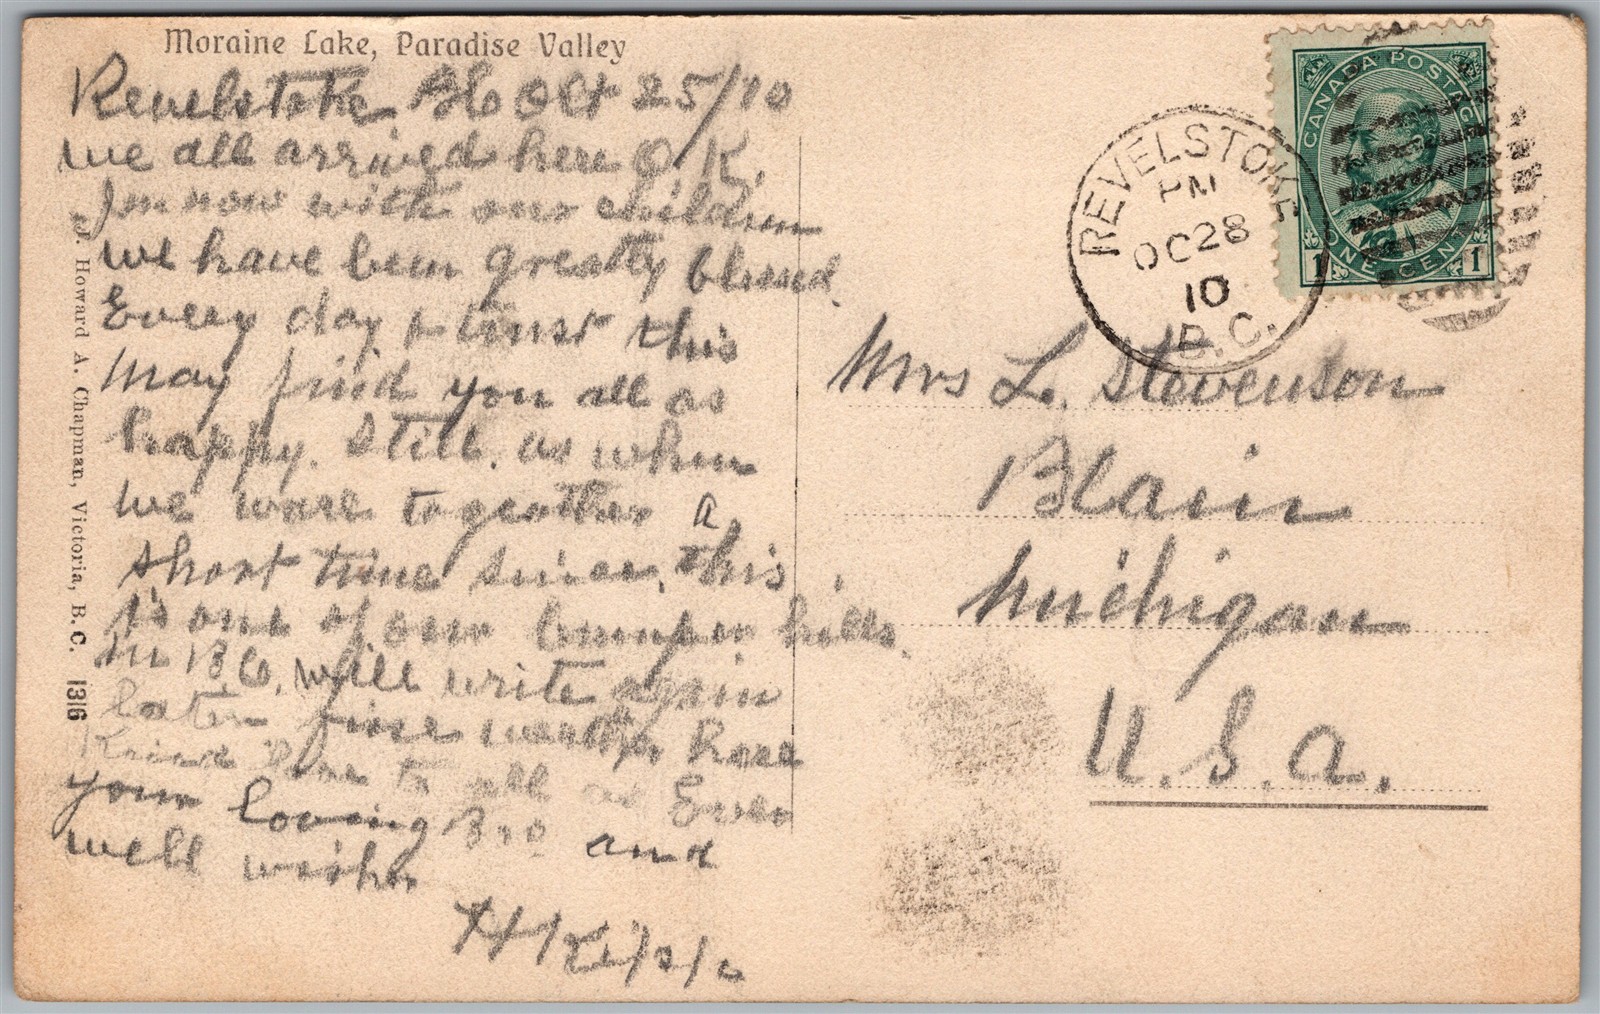 Moraine Lake, Paradise Valley
Revelstoke BC Oct 25/10
we all arrived here O.K.
Im now with our children
we have been greatly blessed.
Every day & trust this
may find you all as
happy. Still. as when
we ware togeather a
short time since. this
is one of our bumper hills.
In BC. will write again
later fine weather here
Kind love to all as Ever
your loving Bro and
well wisher
H
J. Howard A. Chapman, Victoria, B.C. 1316
CANADA POSTAGE
ONE CENT
1 1
REVELSTOKE
PM
OC 28
10
B.C.
Mrs L. Stevenson
Blair
Michigan
U.S.A.